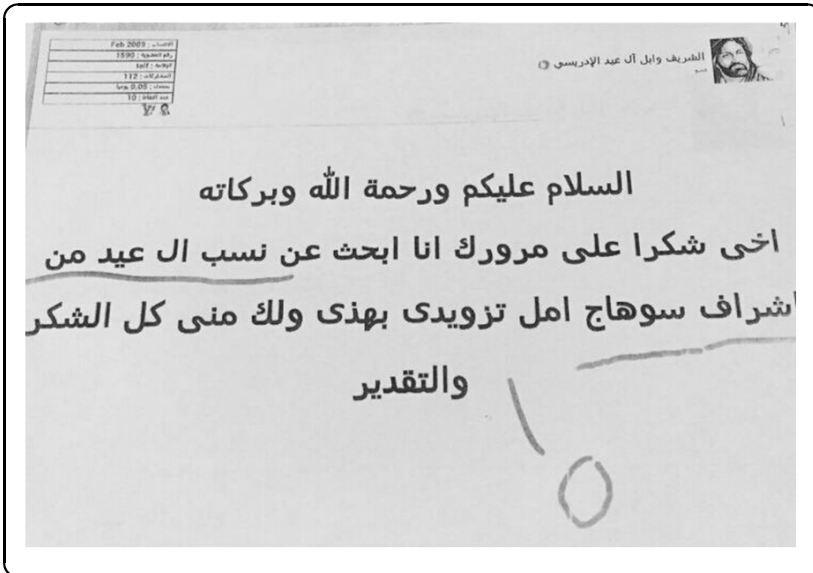 الشريف وابل آل عيد الإدريسي
عضو
الانتساب : Feb 2009
رقم العضوية : 1590
المشاركات : 112
بمعدل : 0.05 يوميا
عدد النقاط : 10
السلام عليكم ورحمة الله وبركاته
اخى شكرا على مرورك انا ابحث عن نسب ال عيد من
اشراف سوهاج امل تزويدى بهذى ولك منى كل الشكر
والتقدير